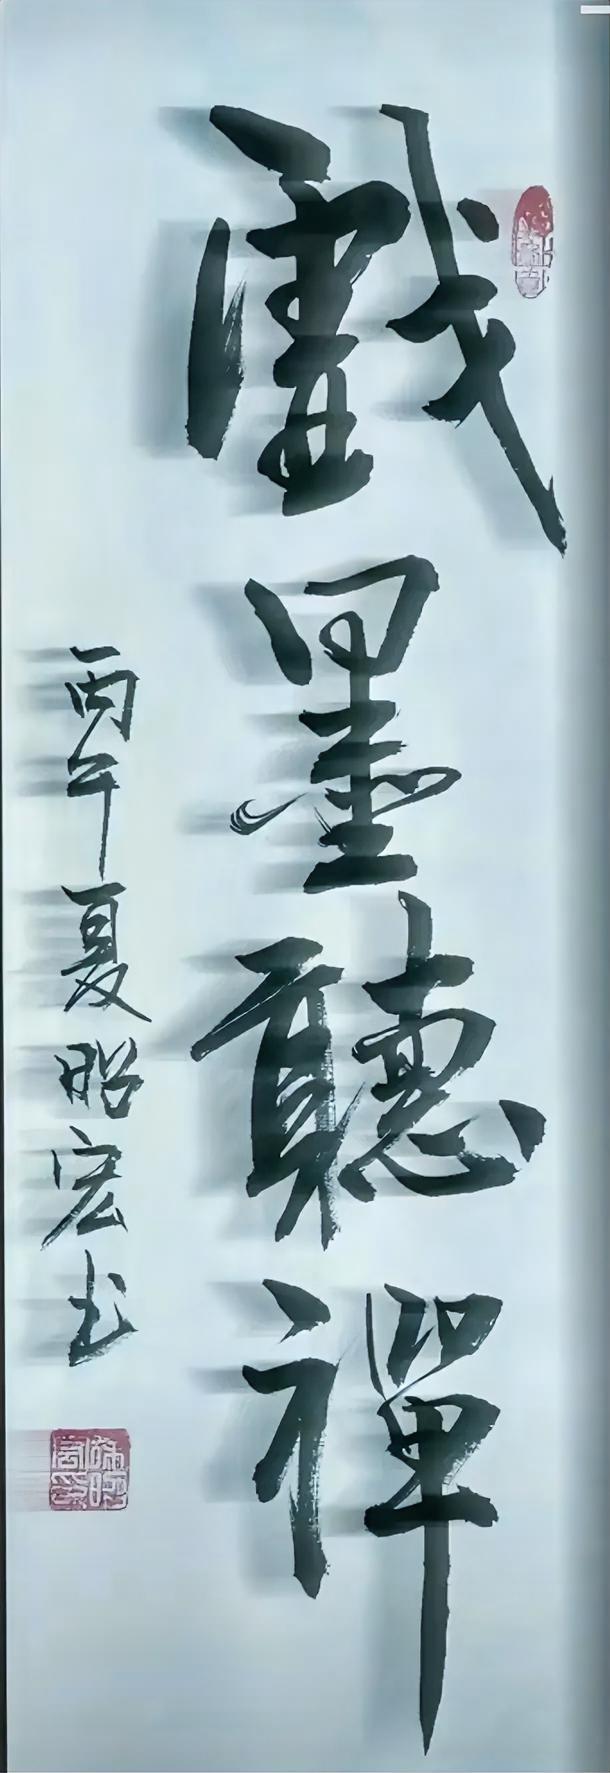 戲墨聽禪
丙午夏昭宏书